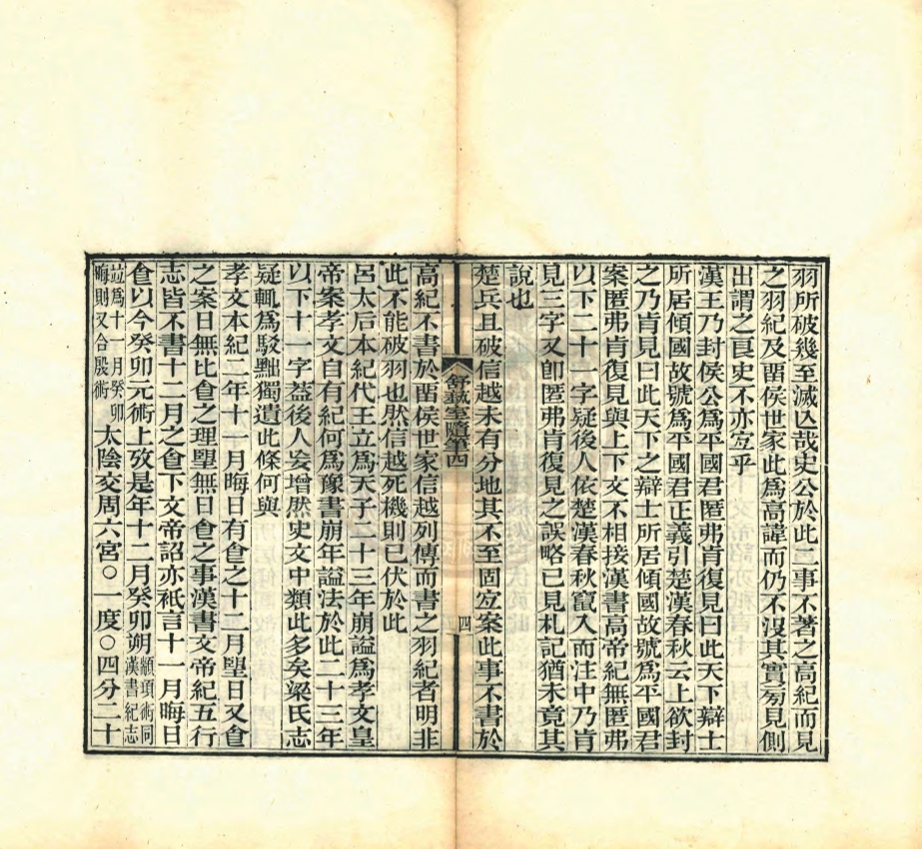 羽所破幾至滅亾哉史公於此二事不著之高紀而見
之羽紀及畱侯世家此爲高諱而仍不沒其實㫄見側
出謂之良史不亦宐乎
漢王乃封侯公爲平國君匿弗肯復見曰此天下辯士
所居傾國故號爲平國君正義引楚漢春秋云上欲封
之乃肯見曰此天下之辯士所居傾國故號爲平國君
案匿弗肯復見與上下文不相接漢書高帝紀無匿弗
以下二十一字疑後人依楚漢春秋竄入而注中乃肯
見三字又卽匿弗肯復見之誤略已見札記猶未竟其
說也
楚兵且破信越未有分地其不至固宐案此事不書於
舒蓺室隨筆四
四
高紀不書於畱侯世家信越列傳而書之羽紀者明非
此不能破羽也然信越死機則已伏於此
呂太后本紀代王立爲天子二十三年崩謚爲孝文皇
帝案孝文自有紀何爲豫書崩年謚法於此二十三年
以下十一字葢後人妄增然史文中類此多矣梁氏志
疑輒爲駁黜獨遺此條何與
孝文本紀二年十一月晦日有食之十二月朢日又食
之案日無比食之理朢無日食之事漢書文帝紀五行
志皆不書十二月之食下文帝詔亦祇言十一月晦日
食以今癸卯元術上攷是年十二月癸卯朔顓頊術同漢書紀志
竝爲十一月癸卯晦則又合殷術太陰交周六宮○一度○四分二十